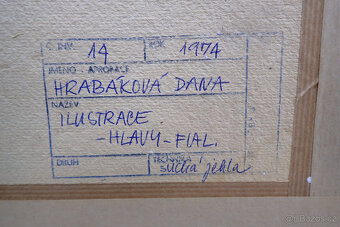 Č. INV. 14 ROK 1974
JMÉNO A PROFESE
HRABÁKOVÁ DANA
NÁZEV
ILUSTRACE
-HLAVY-FIAL.
DRUH TECHNIKA
suchá jehla